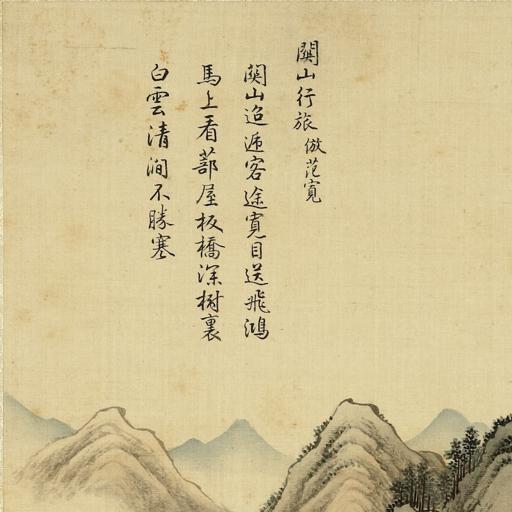 關山行旅 倣范寬
關山迢遞客途寬目送飛鴻
馬上看蔀屋板橋深樹裏
白雲清澗不勝寒